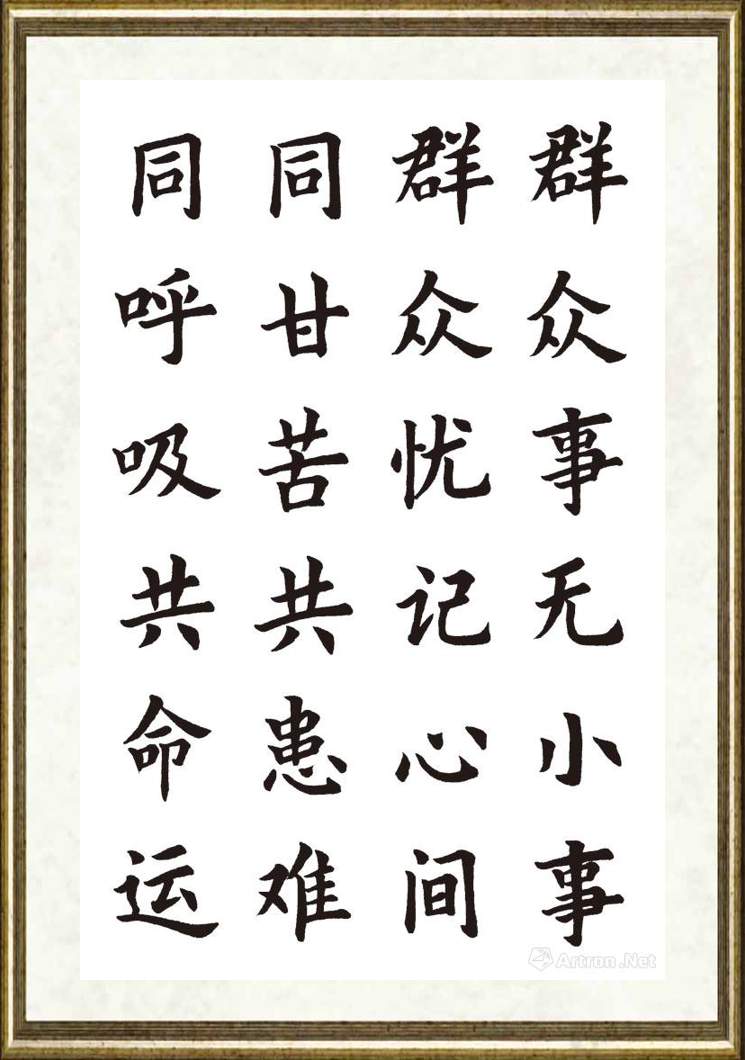 群众事无小事
群众忧记心间
同甘苦共患难
同呼吸共命运
Artron.Net